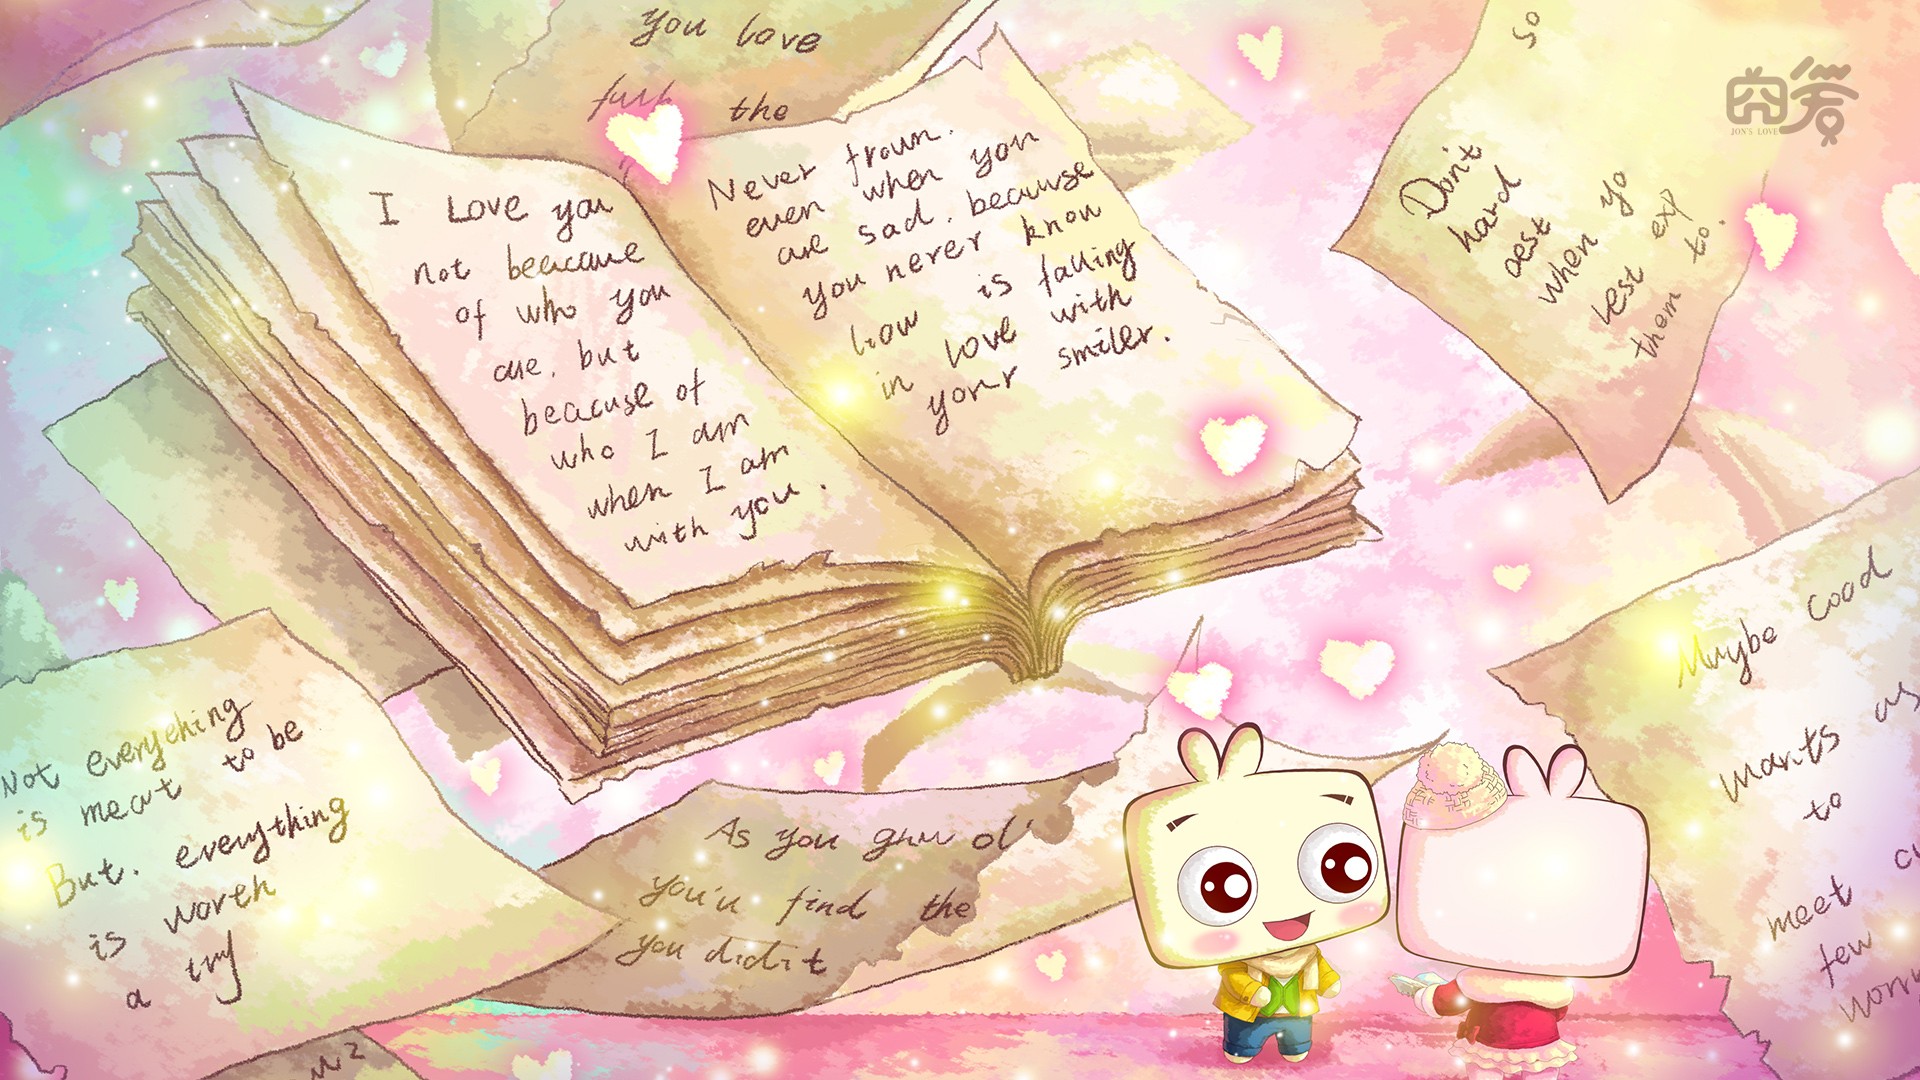 you love
the
I Love you
not beacaue
of who you
are. but
beacuse of
who I am
when I am
with you.
Never frown.
even when you
are sad. because
you never know
how is falling
in love with
your smiler.
so
Don't
hard
aest
when yo
lest exp
them to.
囧爱
JON'S LOVE
Not everyehing
is meat to be
But. everything
is worth
a try
As you grow ol'
you'll find the
you didit
Maybe Good
wants us
to
meet a
few